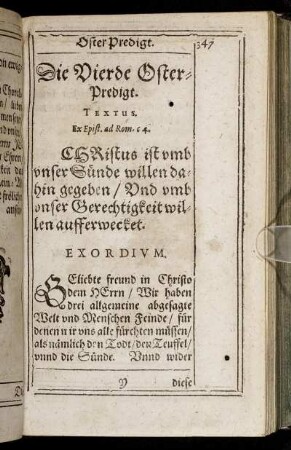 Oster Predigt.
347
Die Vierde Oster-
Predigt.
TEXTUS.
Ex Epist. ad Rom. c 4.
CHRistus ist vmb
vnser Sünde willen da-
hin gegeben / Vnd vmb
vnser Gerechtigkeit wil-
len aufferwecket.
EXORDIVM.
GEliebte freund in Christo
dem HErrn / Wir haben
drei allgemeine abgesagte
Welt vnd Menschen Feinde / für
denen wir vns alle fürchten müssen /
als nämlich den Todt / den Teuffel /
vnnd die Sünde. Vnnd wider
diese